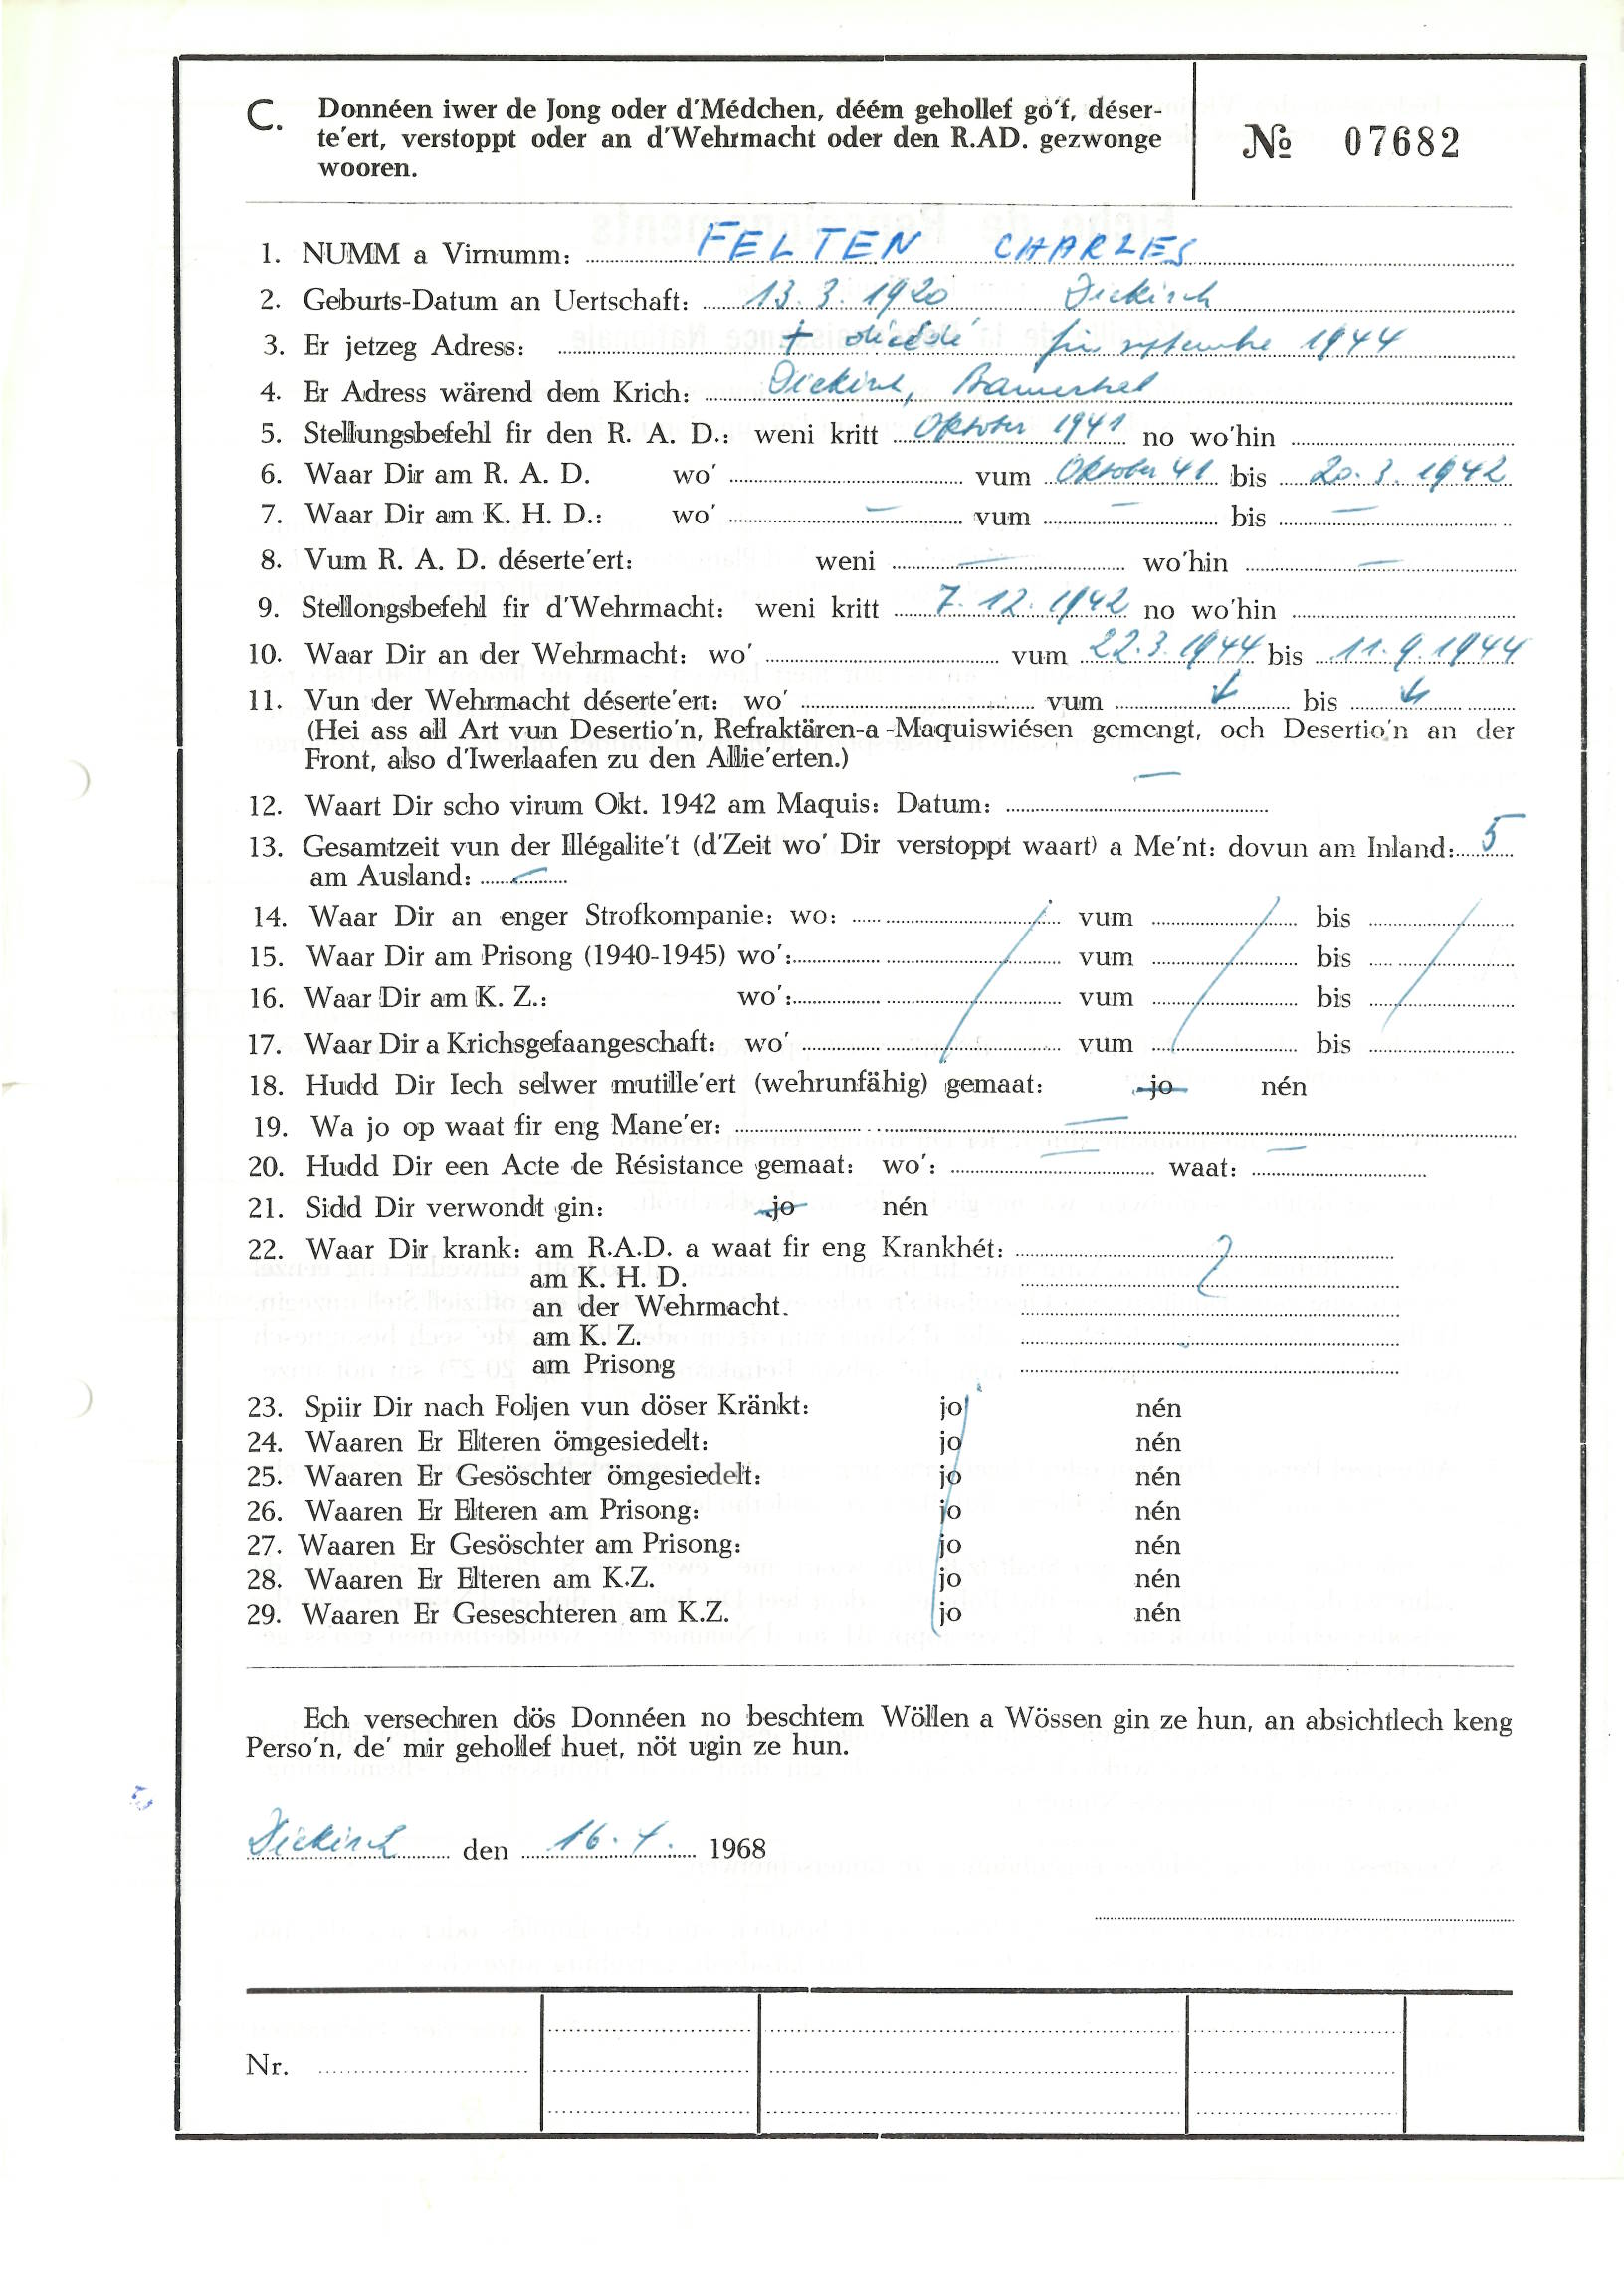 C. Donnéen iwer de Jong oder d'Médchen, déém gehollef go'f, déser-
te'ert, verstoppt oder an d'Wehrmacht oder den R.AD. gezwonge
wooren.
№ 07682
1. NUMM a Virnumm: FELTEN CHARLES
2. Geburts-Datum an Uertschaft: 13.3.1920 Diekirch
3. Er jetzeg Adress: + décédé fin septembre 1944
4. Er Adress wärend dem Krich: Diekirch, Bamertal
5. Stellungsbefehl fir den R. A. D.: weni kritt Oktober 1941 no wo'hin
6. Waar Dir am R. A. D. wo' vum Oktober 41 bis 20.3.1942
7. Waar Dir am K. H. D.: wo' — vum — bis —
8. Vum R. A. D. déserte'ert: weni — wo'hin —
9. Stellongsbefehl fir d'Wehrmacht: weni kritt 7.12.1942 no wo'hin
10. Waar Dir an der Wehrmacht: wo' vum 22.3.1944 bis 11.9.1944
11. Vun der Wehrmacht déserte'ert: wo' vum ↓ bis ↓
(Hei ass all Art vun Desertio'n, Refraktären-a-Maquiswiésen gemengt, och Desertio'n an der
Front, also d'Iwerlaafen zu den Allie'erten.)
12. Waart Dir scho virum Okt. 1942 am Maquis: Datum: —
13. Gesamtzeit vun der Illégalite't (d'Zeit wo' Dir verstoppt waart) a Me'nt: dovun am Inland: 5
am Ausland: —
14. Waar Dir an enger Strofkompanie: wo: vum bis
15. Waar Dir am Prisong (1940-1945) wo': vum bis
16. Waar Dir am K. Z.: wo': vum bis
17. Waar Dir a Krichsgefaangeschaft: wo' vum bis
18. Hudd Dir Iech selwer mutille'ert (wehrunfähig) gemaat: jo nén
19. Wa jo op waat fir eng Mane'er: —
20. Hudd Dir een Acte de Résistance gemaat: wo': — waat: —
21. Sidd Dir verwondt gin: jo nén
22. Waar Dir krank: am R.A.D. a waat fir eng Krankhét:
am K. H. D.
an der Wehrmacht.
am K. Z.
am Prisong
23. Spiir Dir nach Foljen vun döser Kränkt: jo nén
24. Waaren Er Elteren ömgesiedelt: jo nén
25. Waaren Er Gesöschter ömgesiedelt: jo nén
26. Waaren Er Elteren am Prisong: jo nén
27. Waaren Er Gesöschter am Prisong: jo nén
28. Waaren Er Elteren am K.Z. jo nén
29. Waaren Er Geseschteren am K.Z. jo nén
Ech versechren dös Donnéen no beschtem Wöllen a Wössen gin ze hun, an absichtlech keng
Perso'n, de' mir gehollef huet, nöt ugin ze hun.
Diekirch den 16. 1968
Nr.